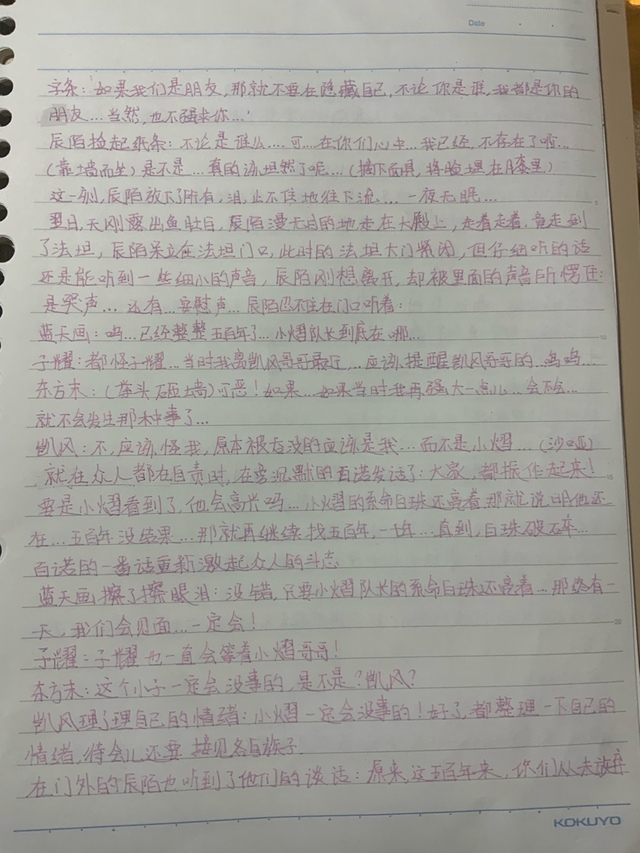 Date
字条：如果我们是朋友，那就不要在隐藏自己，不论你是谁，我都是你的
朋友...当然，也不强求你...
辰陌捡起纸条：不论是谁么....可...在你们心中...我已经，不存在了啦...
（靠墙而坐）是不是...真的该坦然了呢...（摘下面具，将脸埋在膝里）
这一刻，辰陌放下了所有，泪，止不住地往下流....一夜无眠...
翌日，天刚露出鱼肚白，辰陌漫无目的地走在大殿上，走着走着，竟走到
了法坦，辰陌呆立在法坦门口，此时的法坦大门紧闭，但仔细听的话
还是能听到一些细小的声音，辰陌刚想离开，却被里面的声音所愣住：
是哭声...还有...安慰声...辰陌忍不住在门口听着：
蓝天画：呜...已经整整五百年了...小熠队长到底在哪...
子耀：都怪子耀...当时我离凯风哥哥最近...应该提醒凯风哥哥的...呜呜...
东方末：（拳头砸墙）可恶！如果...如果当时我再强大一点儿...会不会...
就不会发生那种事了...
凯风：不，应该怪我，原本被吞没的应该是我...而不是小熠...（沙哑）
就在众人都在自责时，在旁沉默的百诺发话了：大家，都振作起来！
要是小熠看到了，他会高兴吗...小熠的系命白珠还亮着，那就说明他还
在...五百年没结果...那就再继续找五百年，一千年...直到，白珠破碎...
百诺的一番话重新激起众人的斗志
蓝天画擦了擦眼泪：没错，只要小熠队长的系命白珠还亮着...那终有一
天，我们会见面...一定会！
子耀：子耀也一直会等着小熠哥哥！
东方末：这个小子一定会没事的，是不是？凯风？
凯风理了理自己的情绪：小熠一定会没事的！好了，都整理一下自己的
情绪，待会儿还要接见各自族子
在门外的辰陌也听到了他们的谈话：原来，这五百年来，你们从未放弃
KOKUYO